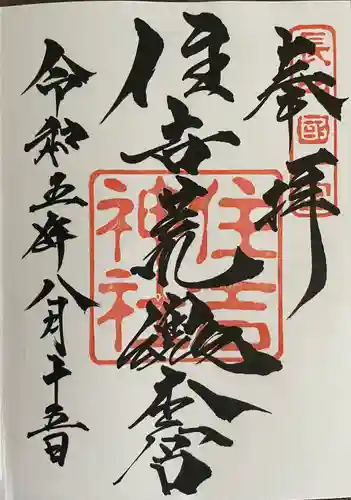 奉拝
長門國一宮
住吉荒魂本宮
住吉
神社
令和五年八月十五日